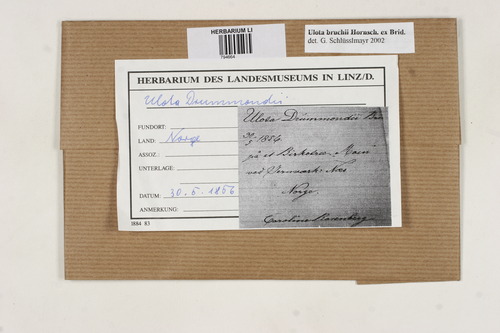 HERBARIUM LI
794664
Ulota bruchii Hornsch. ex Brid.
det. G. Schlüsslmayr 2002
HERBARIUM DES LANDESMUSEUMS IN LINZ/D.
Ulota Drummondii
FUNDORT:
LAND: Norge
ASSOZ.:
UNTERLAGE:
DATUM: 30.5.1856
ANMERKUNG:
1884 83
Ulota Drummondii
30/5 1856
på et
ved
Norge.
Caroline Rosenberg